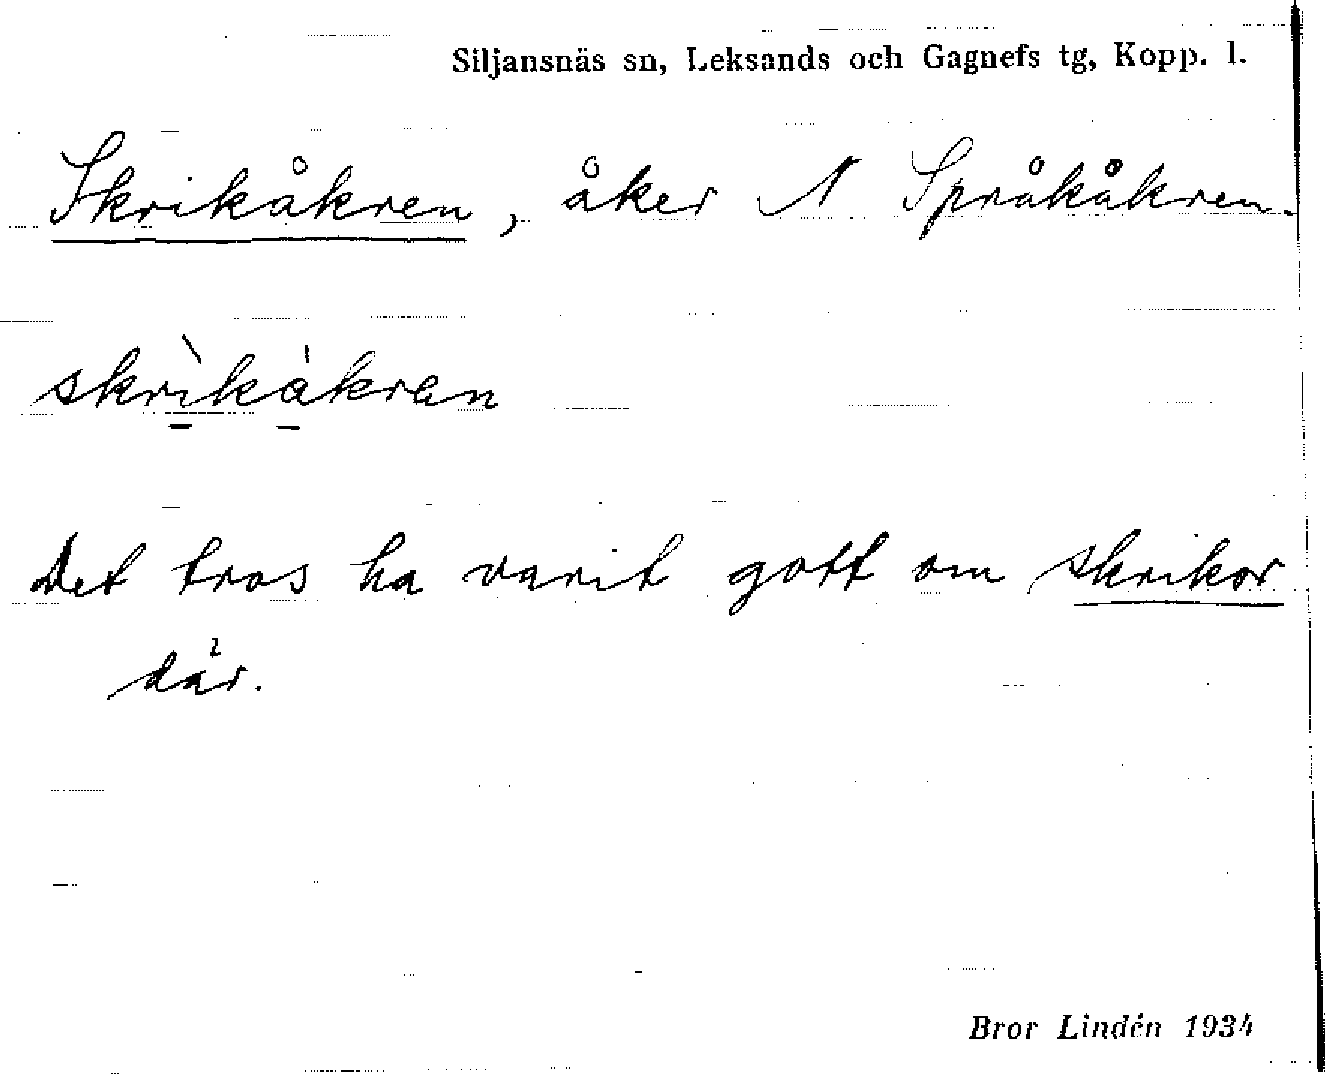 Siljansnäs sn, Leksands och Gagnefs tg, Kopp. l.
Skrikåkren, åker N Språkåkren.
skrìkàkran
Det tros ha varit gott om skrikor
där.
Bror Lindén 1934